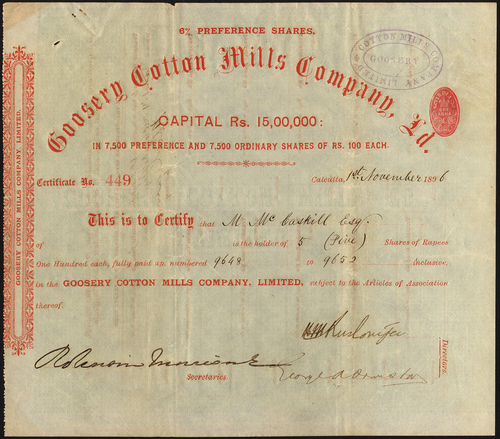 6% PREFERENCE SHARES.
Goosery Cotton Mills Company, Ld.
COTTON MILLS COMPANY LIMITED
GOOSERY
CAPITAL Rs. 15,00,000:
IN 7,500 PREFERENCE AND 7,500 ORDINARY SHARES OF RS. 100 EACH.
Certificate No. 449
Calcutta, 1st November 1896
This is to Certify that M. McCaskill Esq.
of is the holder of 5 (Five) Shares of Rupees
One Hundred each, fully paid up, numbered 9648 to 9652 inclusive,
in the GOOSERY COTTON MILLS COMPANY, LIMITED, subject to the Articles of Association
thereof.
Directors.
Secretaries.
GOOSERY COTTON MILLS COMPANY, LIMITED.